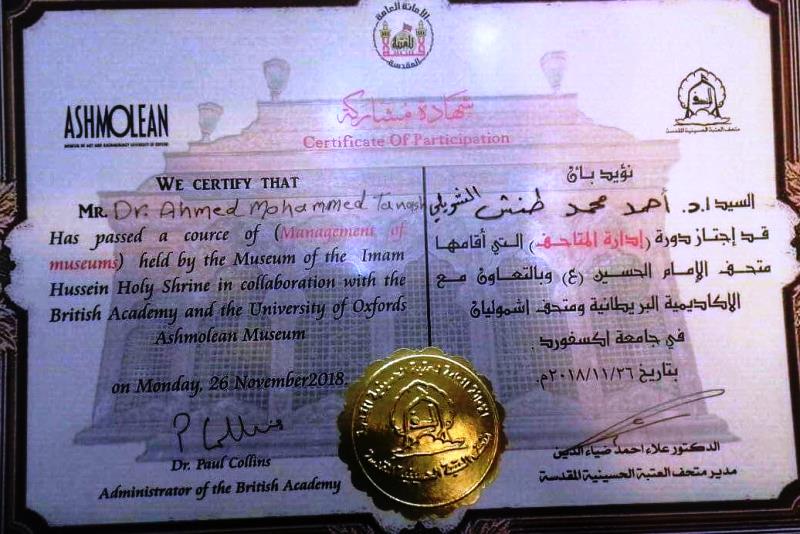 الأمانة العامة
للعتبة
المقدسة
ASHMOLEAN
MUSEUM OF ART AND ARCHAEOLOGY UNIVERSITY OF OXFORD
متحف العتبة الحسينية المقدسة
شهادة مشاركة
Certificate Of Participation
WE CERTIFY THAT
MR. Dr. Ahmed Mohammed Tanash
Has passed a cource of (Management of
museums) held by the Museum of the Imam
Hussein Holy Shrine in collaboration with the
British Academy and the University of Oxfords
Ashmolean Museum
on Monday, 26 November2018.
Dr. Paul Collins
Administrator of the British Academy
نؤيد بأن
السيد ا.د. أحمد محمد طنش الشويلي
قد إجتاز دورة (إدارة المتاحف) التي أقامها
متحف الإمام الحسين (ع) وبالتعاون مع
الاكاديمية البريطانية ومتحف اشموليان
في جامعة اكسفورد.
بتاريخ ٢٠١٨/١١/٢٦م.
الدكتور علاء احمد ضياء الدين
مدير متحف العتبة الحسينية المقدسة